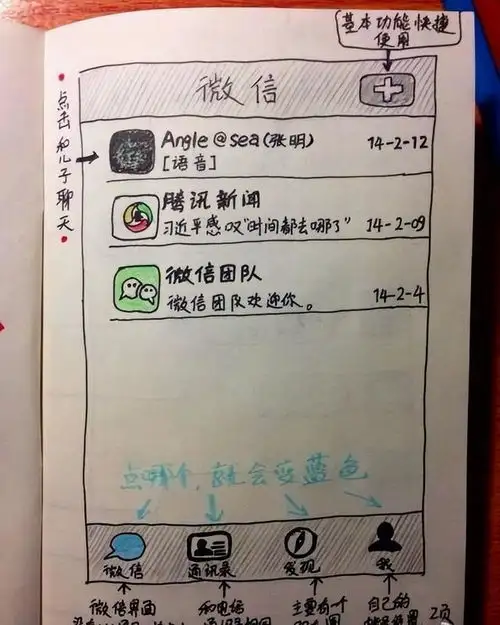 基本功能快捷
使用
点击和儿子聊天
微信
Angle@sea(张明)
14-2-12
[语音]
腾讯新闻
习近平感叹"时间都去哪了"
14-2-09
微信团队
微信团队欢迎你。
14-2-4
点哪个,就会变蓝色
微信
通讯录
发现
我
微信界面
和电话
主要有一个
自己的
2页